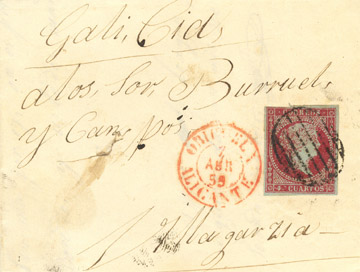 Galicia,
a los Sor. Burruel
y Campos
ORIHUELA
7
ABR
55
ALICANTE
CORREOS
4 CUARTOS
Villagarzia